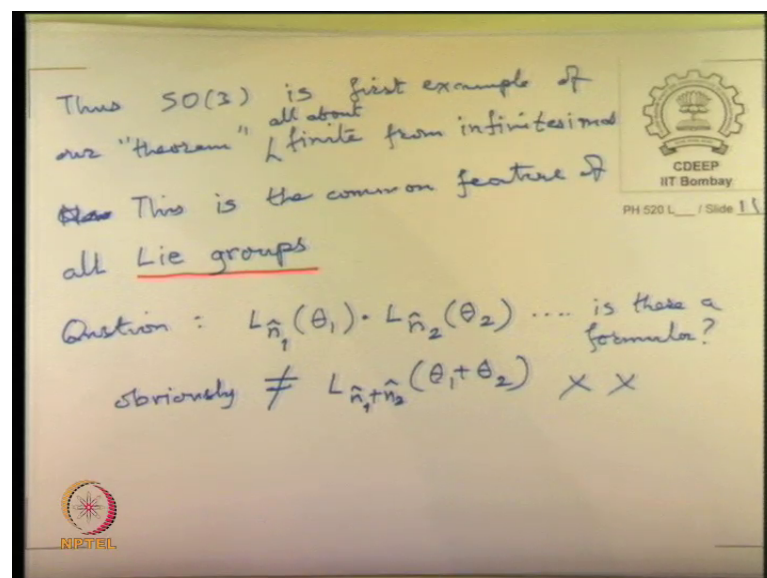 Thus SO(3) is first example of
our "theorem" all about finite from infinitesimal
This is the common feature of
all Lie groups
Question : L_{n̂_1}(θ_1) · L_{n̂_2}(θ_2) .... is there a formula?
obviously ≠ L_{n̂_1+n̂_2}(θ_1+θ_2) × ×
CDEEP
IIT Bombay
PH 520 L___ / Slide 11
NPTEL